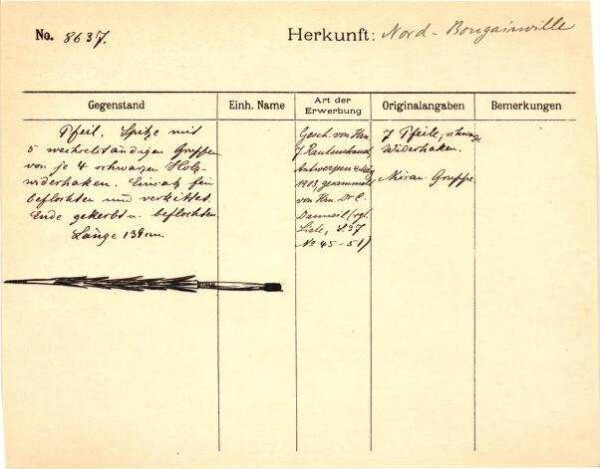 No. 8637.
Herkunft: Nord-Bougainville
Gegenstand
Einh. Name
Art der Erwerbung
Originalangaben
Bemerkungen
Pfeil. Spitze mit
5 wechselständigen Gruppen
von je 4 schwarzen Holz-
widerhaken. Einsatz fein
beflochten und verkittet.
Ende gekerbt u. beflochten
Länge 139 cm.
Gesch. von Hrn.
J. Rautenstrauch,
Antwerpen
1903, gesammelt
von Hrn. Dr. E.
Danneil (vgl.
Liste, S. 37
No 45-51)
7 Pfeile, schwarze
Widerhaken.
Gruppe